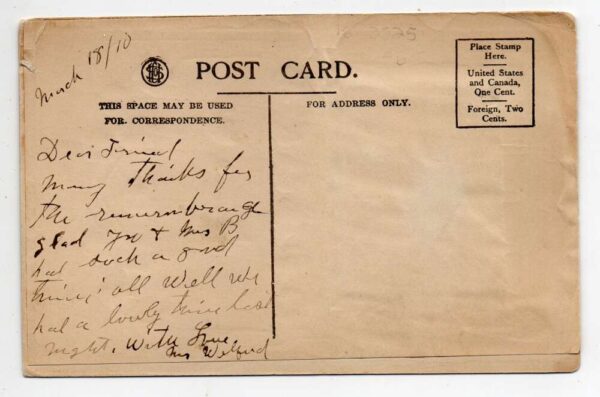 March 18/10
POST CARD.
THIS SPACE MAY BE USED
FOR CORRESPONDENCE.
FOR ADDRESS ONLY.
Place Stamp
Here.
United States
and Canada,
One Cent.
Foreign, Two
Cents.
Dear Friend
Many thanks for
the remembrance
glad you & Mrs B
had such a good
time: all well we
had a lovely time last
night. With Love
Mrs Welford